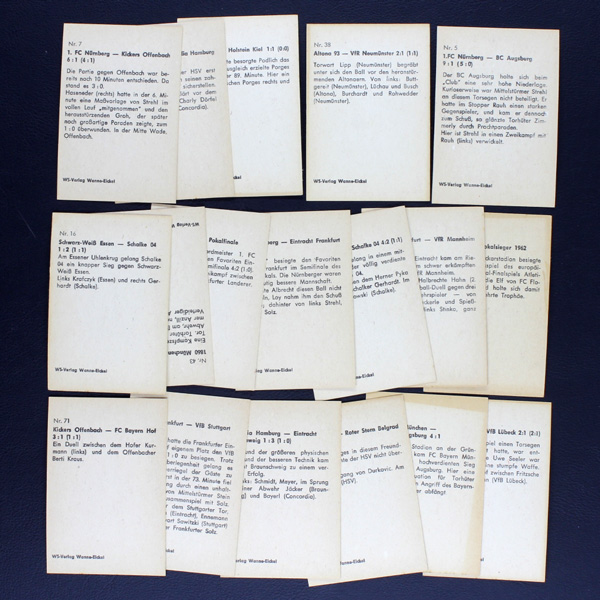 Nr. 7
1. FC Nürnberg — Kickers Offenbach
6 : 1 (4 : 1)
Die Partie gegen Offenbach war be-
reits nach 10 Minuten entschieden. Da
stand es 3 : 0.
Haseneder (rechts) hatte in der 6. Mi-
nute eine Maßvorlage von Strehl im
vollen Lauf „mitgenommen“ und den
herausstürzenden Groh, der später
noch großartige Paraden zeigte, zum
1 : 0 überwunden. In der Mitte Wade,
Offenbach.
WS-Verlag Wanne-Eickel
lia Hamburg
der HSV erst
seinen zah-
sicherstellen.
klärt vor dem
Charly Dörfel
Concordia).
Holstein Kiel 1:1 (0:0)
te besorgte Podlich das
usgleich erzielte Porges
er 89. Minute. Hier ein
chen Porges rechts und
Eickel
Nr. 38
Altona 93 — VfR Neumünster 2:1 (1:1)
Torwart Lipp (Neumünster) begräbt
unter sich den Ball vor den heranstür-
menden Altonaern. Von links: Butt-
gereit (Neumünster), Löchau und Busch
(Altona), Borchardt und Rohwedder
(Neumünster).
WS-Verlag Wanne-Eickel
Nr. 5
1.FC Nürnberg — BC Augsburg
9 : 1 (5 : 0)
Der BC Augsburg holte sich beim
„Club“ eine sehr hohe Niederlage.
Kurioserweise war Mittelstürmer Strehl
an diesem Torsegen nicht beteiligt. Er
hatte im Stopper Rauh einen starken
Gegenspieler, und kam er dennoch
zum Schuß, so glänzte Torhüter Zim-
merly durch Prachtparaden.
Hier ist Strehl in einen Zweikampf mit
Rauh (links) verwickelt.
WS-Verlag Wanne-Eickel
Nr. 16
Schwarz-Weiß Essen — Schalke 04
1 : 2 (1 : 1)
Am Essener Uhlenkrug gelang Schalke
04 ein knapper Sieg gegen Schwarz-
Weiß Essen.
Links Krafczyk (Essen) und rechts Ger-
hardt (Schalke).
WS-Verlag Wanne-Eickel
WS-Verlag W
Nr. 43
1860 München
Pokalfinale
ordmeister 1. FC
en Favoriten Ein-
mifinale 4:2 (1:0).
ikampf zwischen
rter Landerer.
berg — Eintracht Frankfurt
besiegte den Favoriten
nkfurt im Semifinale des
kals. Die Nürnberger waren
utig bessere Mannschaft.
te dahinter diesen Ball nicht
in, Loy nahm ihn den Schuß
echts erkennt man Strehl,
Solz.
Schalke 04 4:2 (1:1)
lang in einem mit-
er völlig verdiente
dem Horner Pyka
chalker Gerhardt. Im
owski (Schalke).
furt — VfR Mannheim
Eintracht kam am Rie-
n schwer erkämpften
fR Mannheim.
Höllbrechte Hahn (2.
ball-Duell gegen drei
hrspieler — von
ckerle und Spieß-
links Stinka, ganz
okalsieger 1962
eckarstadion besiegte
spiel des europäi-
al-Finalspiels Atleti-
e Elf von FC Flo-
d holte sich damit
hrte Trophäe.
Nr. 71
Kickers Offenbach — FC Bayern Hof
3 : 1 (1 : 1)
Ein Duell zwischen dem Hofer Kur-
mann (links) und dem Offenbacher
Berti Kraus.
WS-Verlag Wanne-Eickel
nkfurt — VfB Stuttgart
hatte die Frankfurter Ein-
eigenem Platz den VfB
1 : 0 zu besiegen. Trotz
berlegenheit gelang es
erriegel der Gäste zu
erst in der 73. Minute fiel
g durch einen unhalt-
s Mittelstürmer Stein
usammenspiel mit Solz.
dem Stuttgarter Tor.
(Eintracht), Ennemann
art Sawitzki (Stuttgart)
r Frankfurter Solz.
Eickel
ia Hamburg — Eintracht
weig 1 : 3 (1 : 0)
und der größeren physischen
nd der besseren Technik kam
t Braunschweig zu einem ver-
Erfolg.
ks: Schmidt, Meyer, im Sprung
einer Abwehr Jäcker (Braun-
g) und Bayerl (Concordia).
g Wanne-Eickel
Roter Stern Belgrad
ges in diesem Freund-
te der HSV nicht über-
gang von Durkovic. Am
(HSV).
nne-Eickel
München —
ugsburg 4 : 1
Stadion an der Grün-
kam FC Bayern Mün-
hochverdienten Sieg
Augsburg. Hier eine
tuation für Torhüter
n Angriff des Bayern-
er abfängt.
VfB Lübeck 2:1 (2:1)
piel einen Torsegen
t hatte, war ent-
e Uwe Seeler war
ine stumpfe Waffe.
t zwischen Fritzsche
(VfB Lübeck).
Eickel